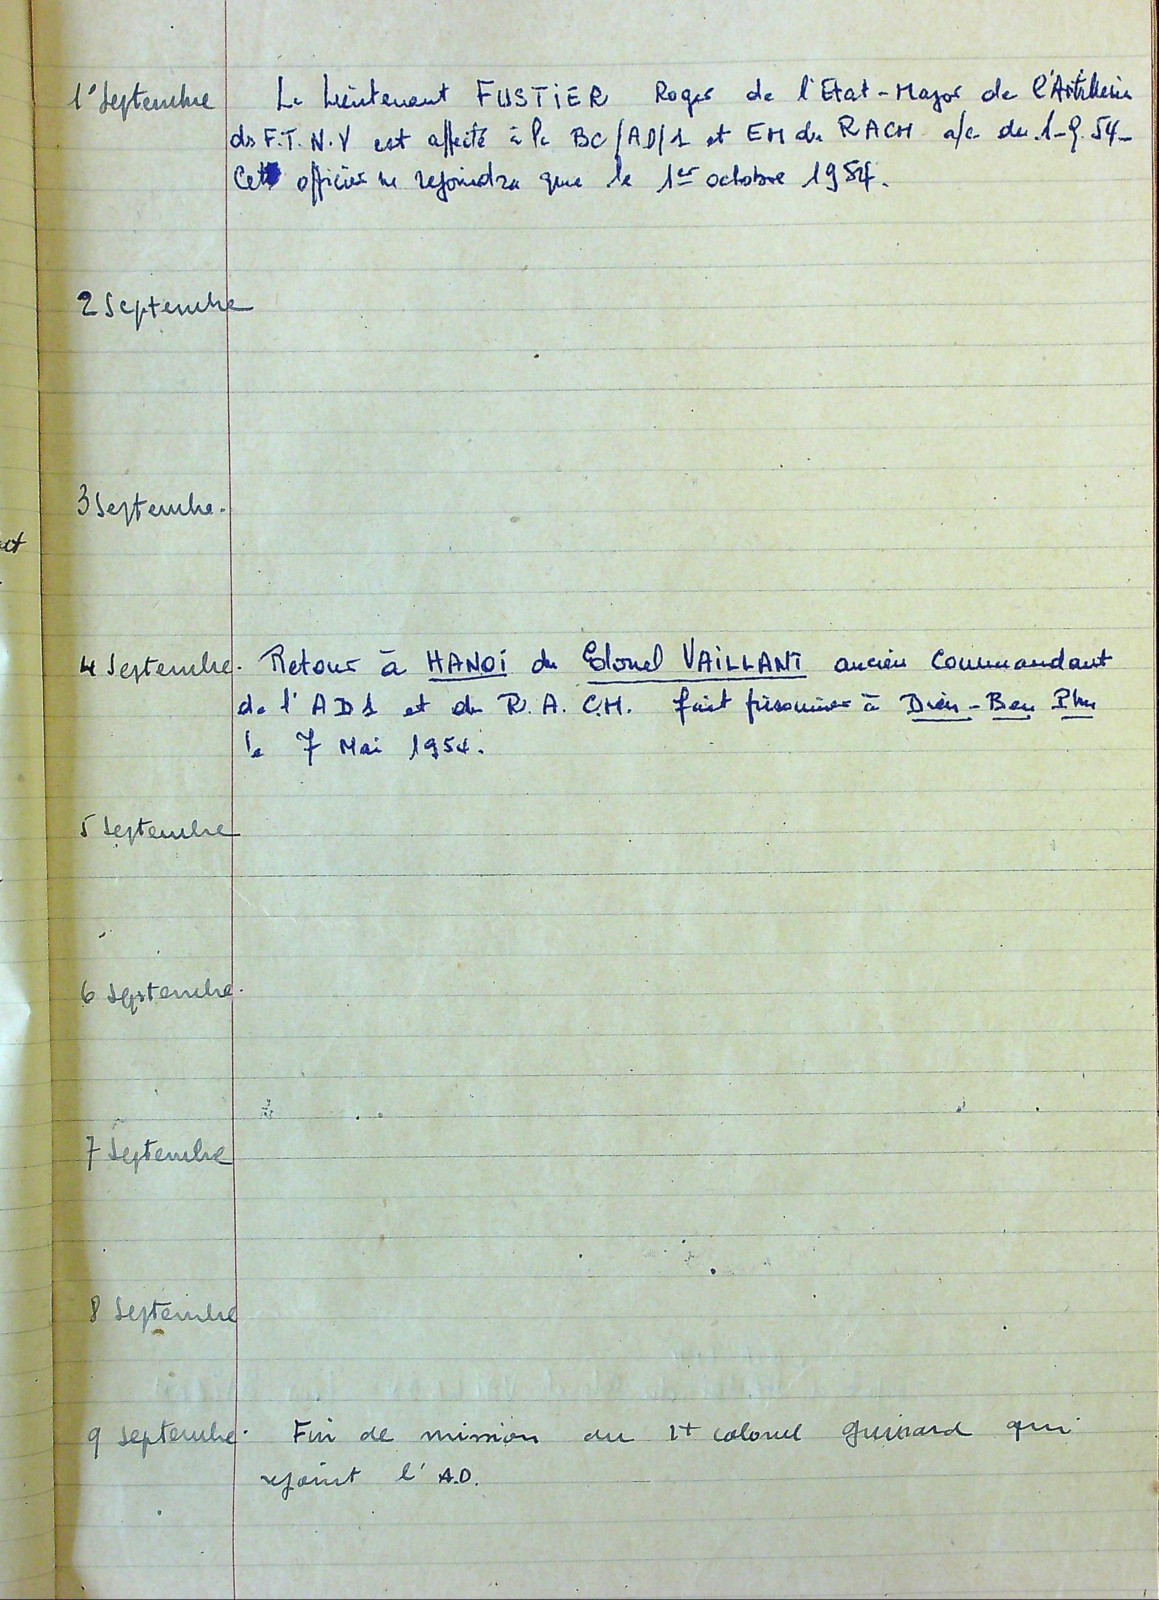 1° Septembre Le Lieutenant FUSTIER Roger de l'Etat-Major de l'Artillerie
des F.T.N.V est affecté à la BC/AD/1 et EM du RACM a/c du 1-9.54-
Cet officier ne rejoindra que le 1er octobre 1954.
2 Septembre
3 Septembre.
4 Septembre. Retour à HANOÏ du Colonel VAILLANT ancien Commandant
de l'AD1 et du R.A.C.M. fait prisonnier à Dièn-Ben Phu
le 7 Mai 1954.
5 Septembre
6 Septembre.
7 Septembre
8 Septembre
9 septembre. Fin de mission du Lt colonel Guinard qui
rejoint l'A.D.